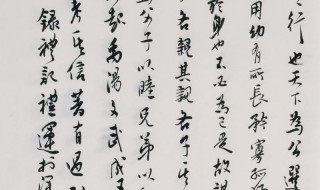 之行也天下為公選
用幼有所長矜寡孤
於身也不必為己是故謀
各親其親各子其
父子以睦兄弟以
起禹湯文武成王
考其信著有過刑
錄禮記禮運